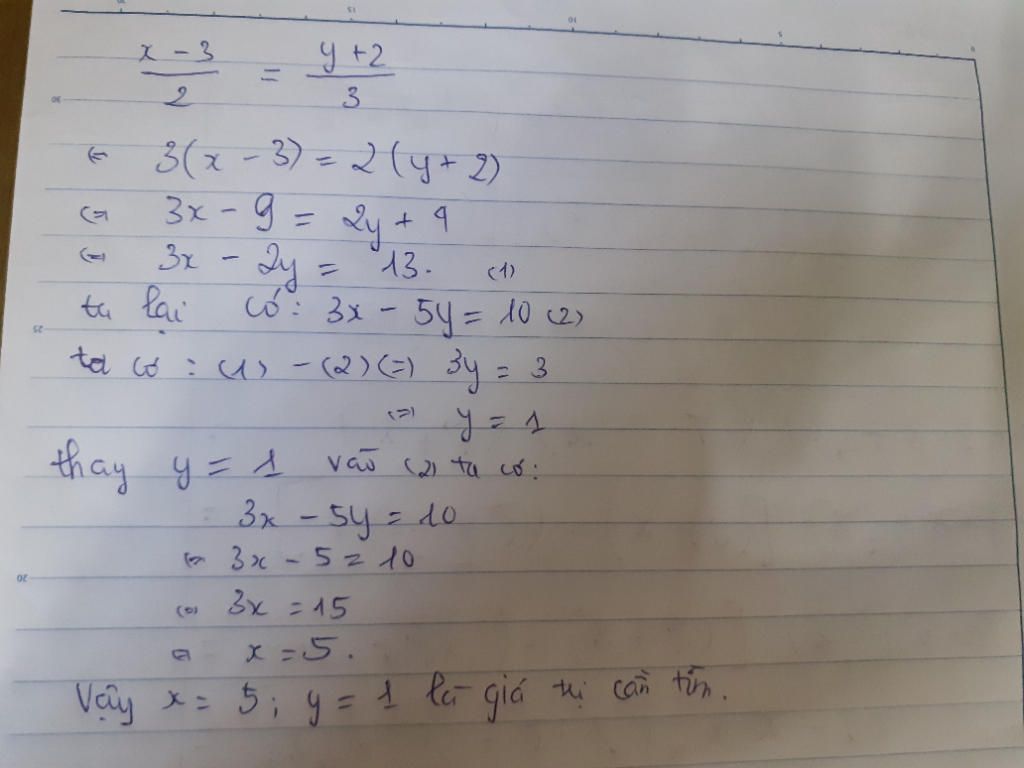 x - 3 / 2 = y + 2 / 3
⇔ 3(x - 3) = 2(y + 2)
⇔ 3x - 9 = 2y + 4
⇔ 3x - 2y = 13. (1)
ta lại có: 3x - 5y = 10 (2)
ta có : (1) - (2) ⇔ 3y = 3
⇔ y = 1
thay y = 1 vào (2) ta có:
3x - 5y = 10
⇔ 3x - 5 = 10
⇔ 3x = 15
⇔ x = 5.
Vậy x = 5; y = 1 là giá trị cần tìm.